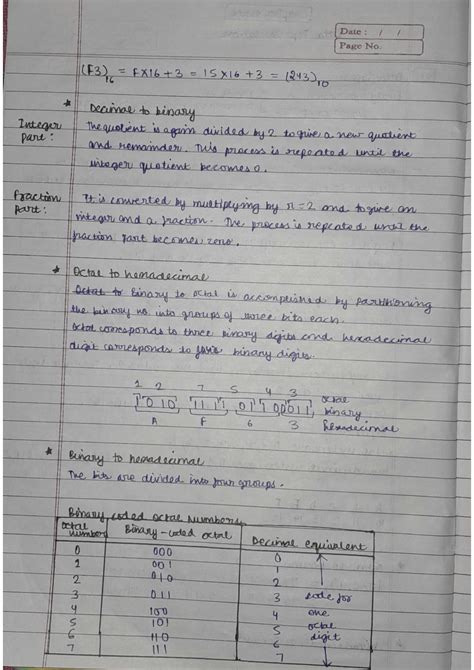 Date : / /
Page No.
(F3)₁₆ = F×16 + 3 = 15×16 + 3 = (243)₁₀
* Decimal to binary
Integer Part :
The quotient is again divided by 2 to give a new quotient
and remainder. This process is repeated until the
integer quotient becomes 0.
Fraction Part :
It is converted by multiplying by r=2 and to give an
integer and a fraction. The process is repeated until the
fraction part becomes zero.
* Octal to hexadecimal
Octal to Binary to octal is accomplished by partitioning
the binary no. into groups of three bits each.
Octal corresponds to three binary digits and hexadecimal
digit corresponds to four binary digits.
1 2 7 5 4 3 octal
1 010 1111 01 100011 binary
A F 6 3 hexadecimal
* Binary to hexadecimal
The bits are divided into four groups.
Binary coded octal numbers
Octal number Binary-coded octal Decimal equivalent
0 000 0
1 001 1
2 010 2
3 011 3 code for
4 100 4 one
5 101 5 octal
6 110 6 digit
7 111 7